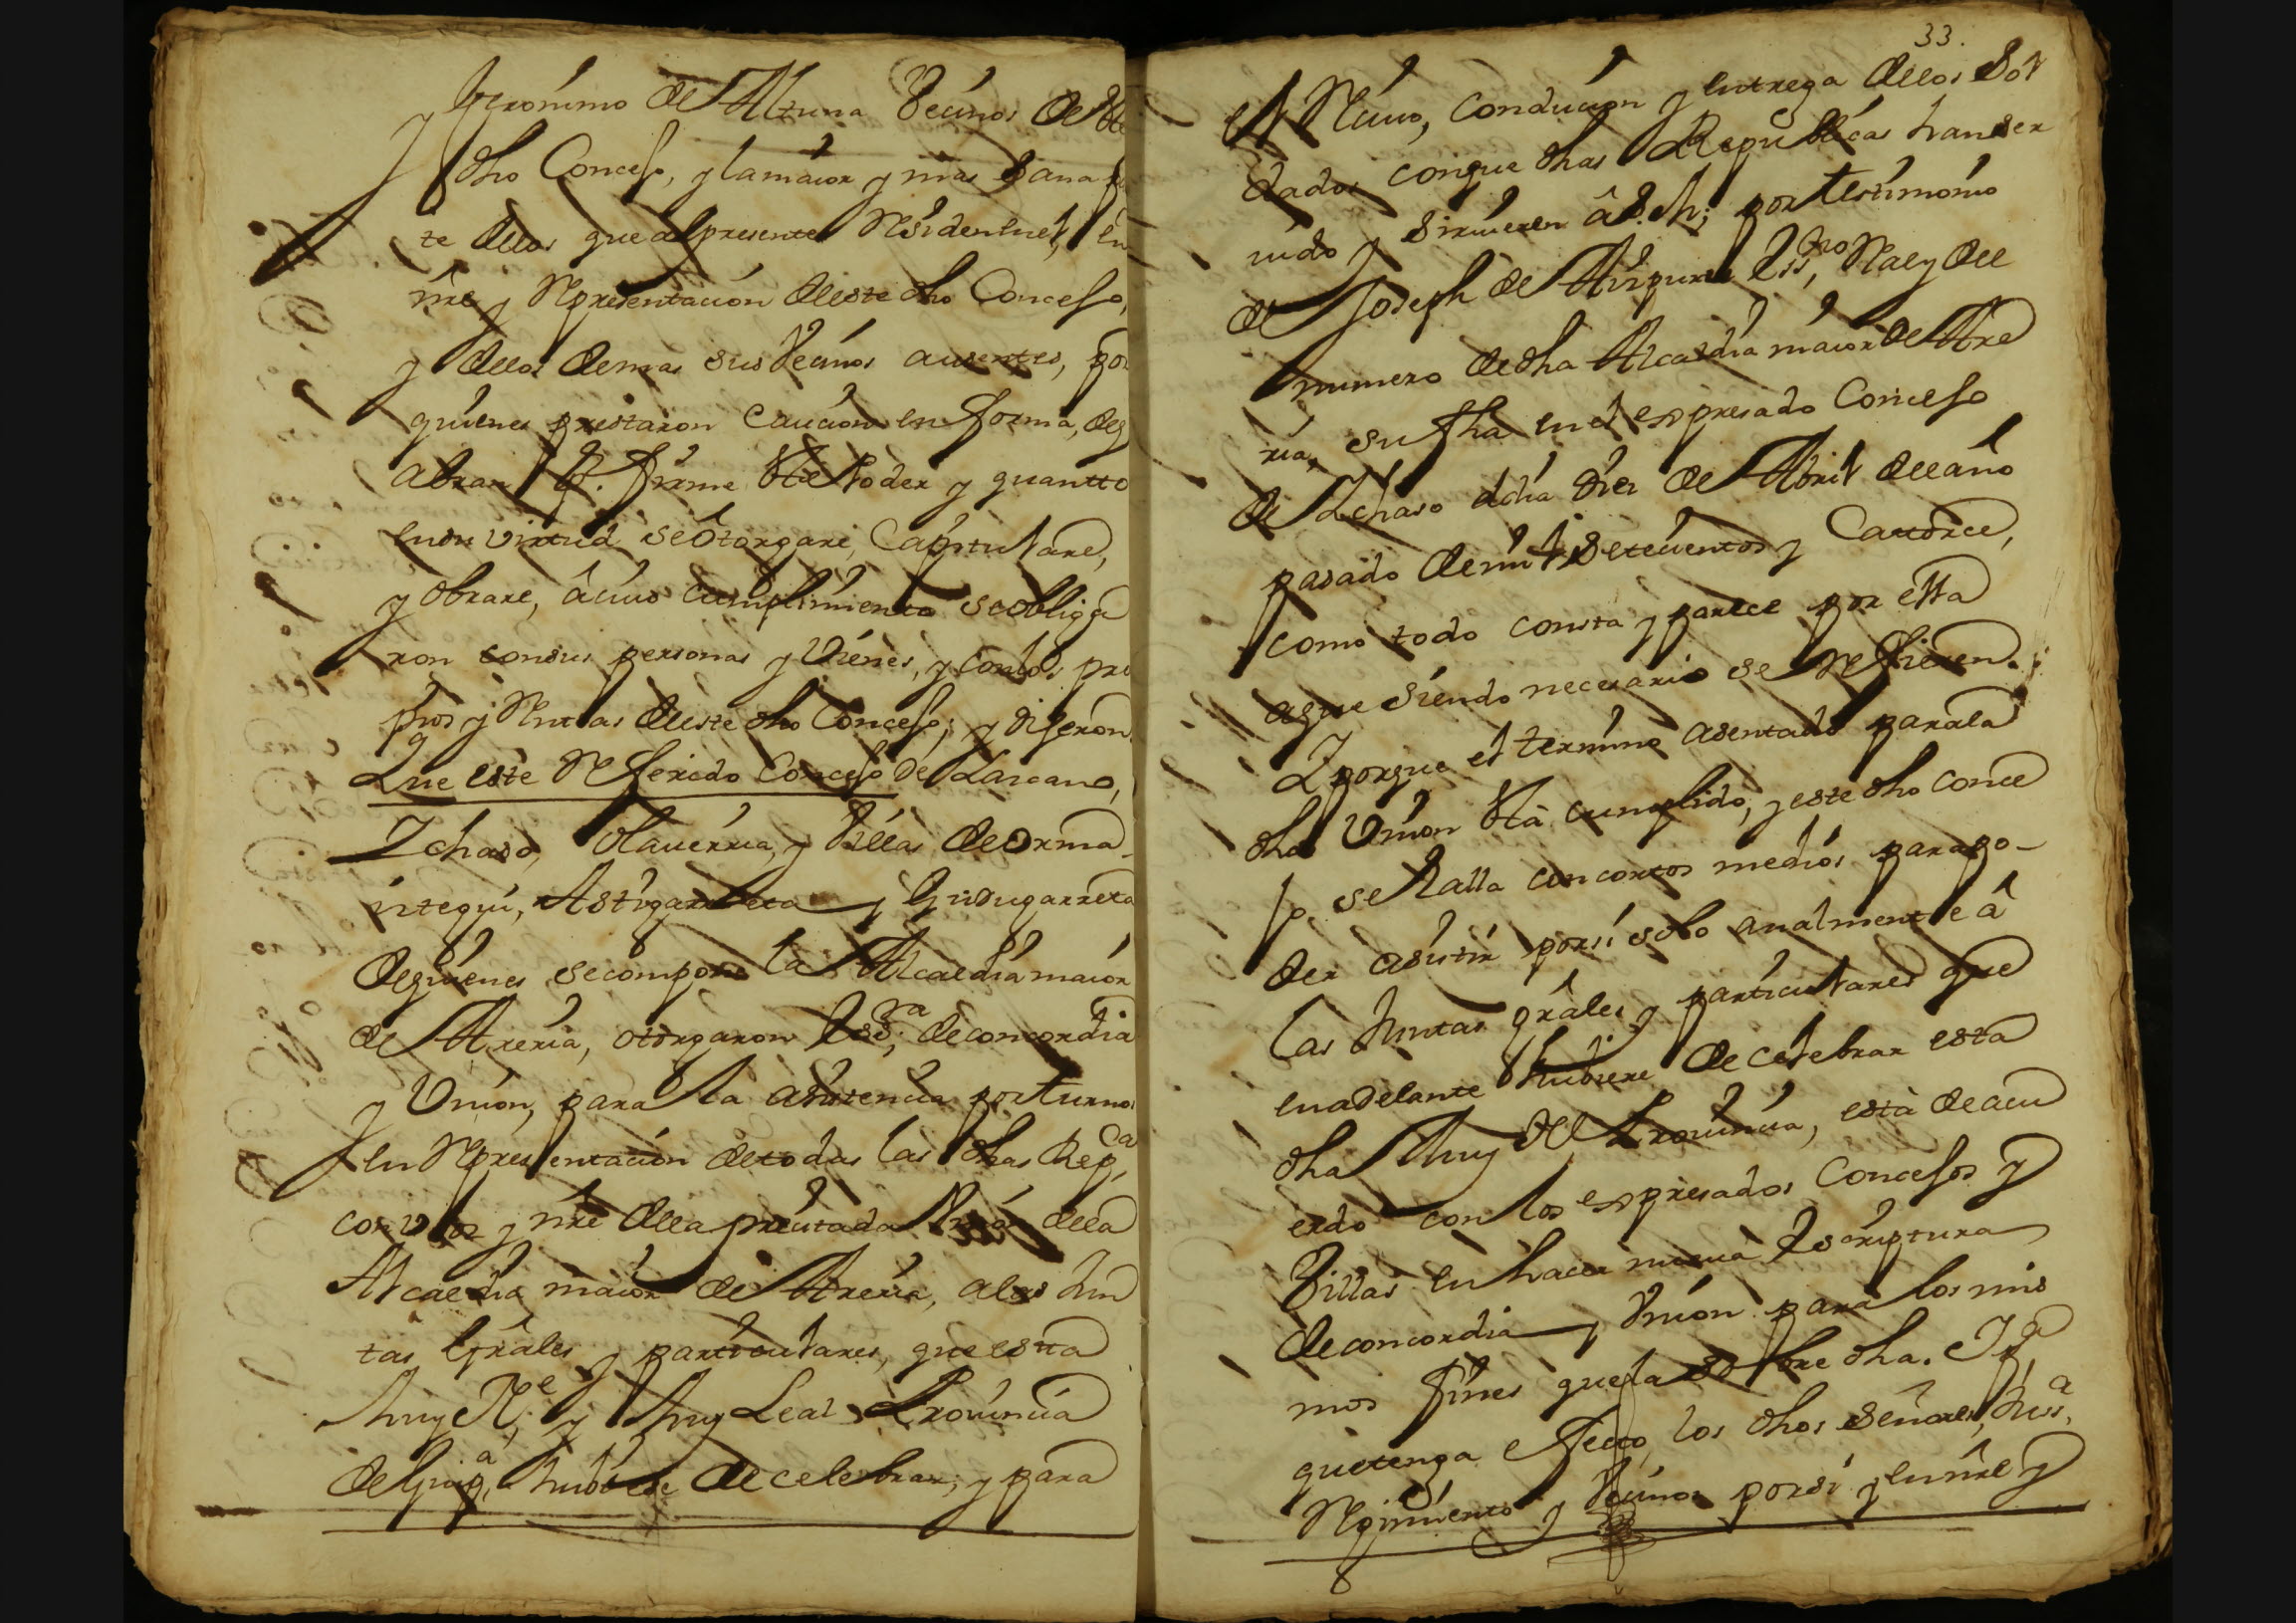 y Geronimo de Altuna Vecinos de este
dho Concejo, y la maior y mas sana par
te dellos que al presente Residen en el, en
nre y Representacion deeste dho Concejo,
y dellos demas sus Vecinos ausentes, por
quienes prestaron Caucion en forma, de q
abran P. firme este Poder y quantto
en su virtud se ôtorgare, Capitulare,
y obrare, â cuio cumplimiento se obliga
ron con sus personas y Vienes, y con los pro
pios y Rentas deeste dho Concejo; y dijeron
Que este Referido Concejo de Lazcano,
Ychaso, Olauerria, y Villas de Orma
iztegui, Astigarreta y Gudugarreta
de quienes se compone la Alcaldia maior
de Areria, otorgaron Ess.ra de concordia
y Vnion, para la asistencia por turnos
en Representacion de todas las dhas Rep.cas
con voz y nre della precitada Vnion della
Alcaldia maior de Areria, a las Jun
tas Grâles y particulares, que esta
Muy N.e y Muy Leal Prouincia
de Guip.a hubiese de celebrar; y para
33.
el Reciuo, Conducion y entrega dellos Sol
dados con que dhas Republicas han ser
uido y siruieren â S.M; por testimonio
de Joseph de Aizpurua Ess.no Real y del
numero de dha Alcaldia maior de Are
ria, su fha en el expresado Concejo
de Ychaso a dia diez de Abril del año
pasado de mil Setecientos y Catorce,
como todo consta y parece por ella
a que siendo necesario se Refieren.
Y porque el termino asentado para la
dha Vnion está cumplido, y este dho Conce
jo se halla con cortos medios para po-
der asistir por si solo anualmente â
las Juntas grâles y particulares que
en adelante hubiere de celebrar esta
dha Muy N. Prouincia, està de acu
erdo con los expresados Concejos y
Villas en hacer nueua Escriptura
de concordia y Vnion para los mis
mos fines que la sobre dha. Y pa
que tenga efecto los dhos Señores Jus.a
Regimiento y Vecinos por si y en nre y